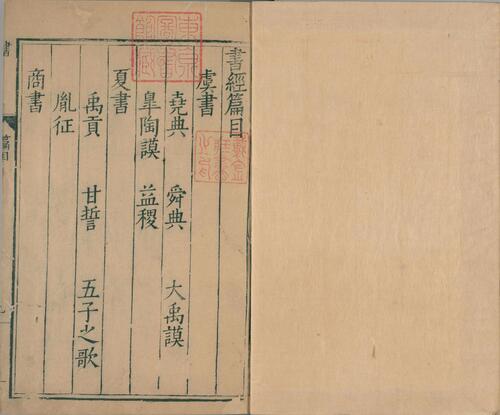 書經篇目
虞書
堯典 舜典 大禹謨
皐陶謨 益稷
夏書
禹貢 甘誓 五子之歌
胤征
商書
篇目